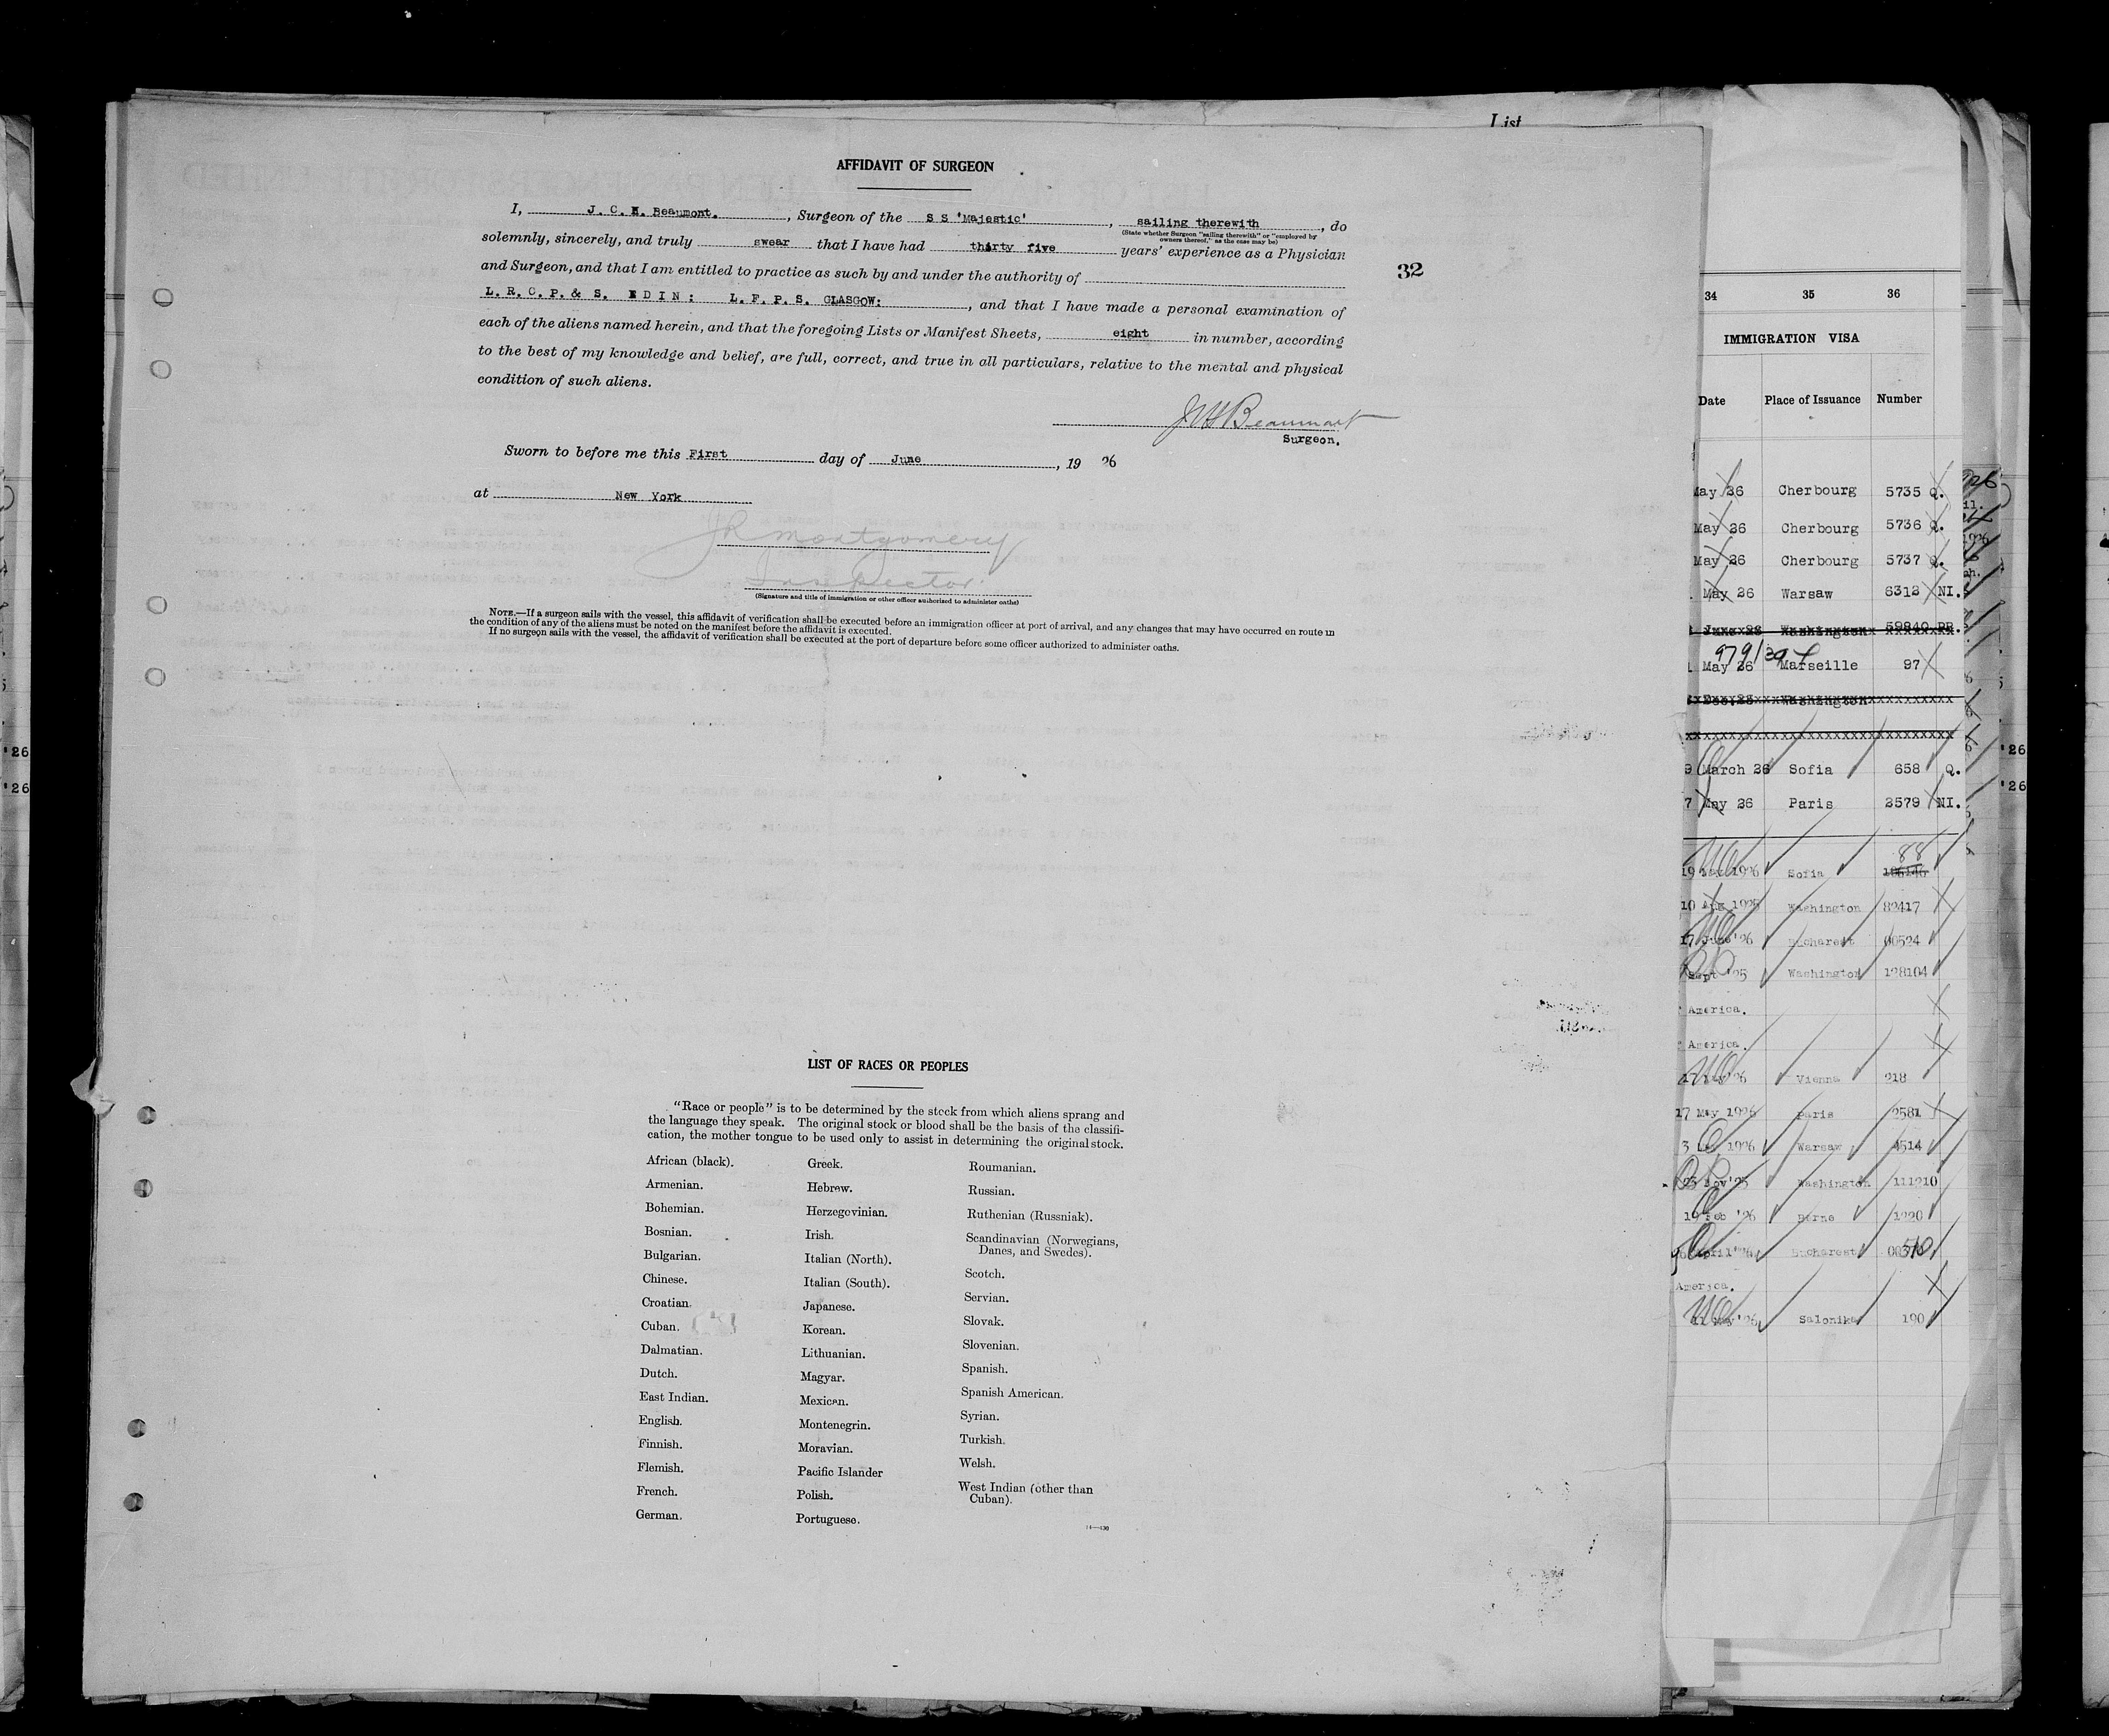 List
AFFIDAVIT OF SURGEON
I, J. C. H. Beaumont. , Surgeon of the S S 'Majestic' , sailing therewith , do
(State whether Surgeon "sailing therewith" or "employed by
owners thereof," as the case may be)
solemnly, sincerely, and truly swear that I have had thirty five years' experience as a Physician
and Surgeon, and that I am entitled to practice as such by and under the authority of
32
L. R. C. P. & S. E D I N : L. F. P. S. GLASGOW: , and that I have made a personal examination of
each of the aliens named herein, and that the foregoing Lists or Manifest Sheets, eight in number, according
to the best of my knowledge and belief, are full, correct, and true in all particulars, relative to the mental and physical
condition of such aliens.
JCHBeaumont
Surgeon.
Sworn to before me this First day of June , 19 26
at New York
JR Montgomery
Inspector.
(Signature and title of immigration or other officer authorized to administer oaths)
NOTE.—If a surgeon sails with the vessel, this affidavit of verification shall be executed before an immigration officer at port of arrival, and any changes that may have occurred en route in
the condition of any of the aliens must be noted on the manifest before the affidavit is executed.
If no surgeon sails with the vessel, the affidavit of verification shall be executed at the port of departure before some officer authorized to administer oaths.
LIST OF RACES OR PEOPLES
"Race or people" is to be determined by the stock from which aliens sprang and
the language they speak. The original stock or blood shall be the basis of the classifi-
cation, the mother tongue to be used only to assist in determining the original stock.
African (black).
Armenian.
Bohemian.
Bosnian.
Bulgarian.
Chinese.
Croatian.
Cuban.
Dalmatian.
Dutch.
East Indian.
English.
Finnish.
Flemish.
French.
German.
Greek.
Hebrew.
Herzegovinian.
Irish.
Italian (North).
Italian (South).
Japanese.
Korean.
Lithuanian.
Magyar.
Mexican.
Montenegrin.
Moravian.
Pacific Islander
Polish.
Portuguese.
Roumanian.
Russian.
Ruthenian (Russniak).
Scandinavian (Norwegians,
Danes, and Swedes).
Scotch.
Servian.
Slovak.
Slovenian.
Spanish.
Spanish American.
Syrian.
Turkish.
Welsh.
West Indian (other than
Cuban).
34 35 36
IMMIGRATION VISA
Date Place of Issuance Number
May 26 Cherbourg 5735 Q.
May 26 Cherbourg 5736 Q.
May 26 Cherbourg 5737 Q.
May 26 Warsaw 6312 NI.
Washington 59840 PR.
979/30
May 26 Marseille 97
Washington
March 26 Sofia 658 Q.
7 May 26 Paris 2579 NI.
88
19 1926 Sofia
10 Aug 1925 Washington 82417
17 June '26 Bucharest 00524
Sept '25 Washington 128104
America.
America.
17 May '26 Vienna 218
17 May 1926 Paris 2581
3 1926 Warsaw 4514
23 Nov '25 Washington 111210
Feb '26 Berne 1220
April '26 Bucharest
America.
May '26 Salonika 190
'26
'26
'26
'26